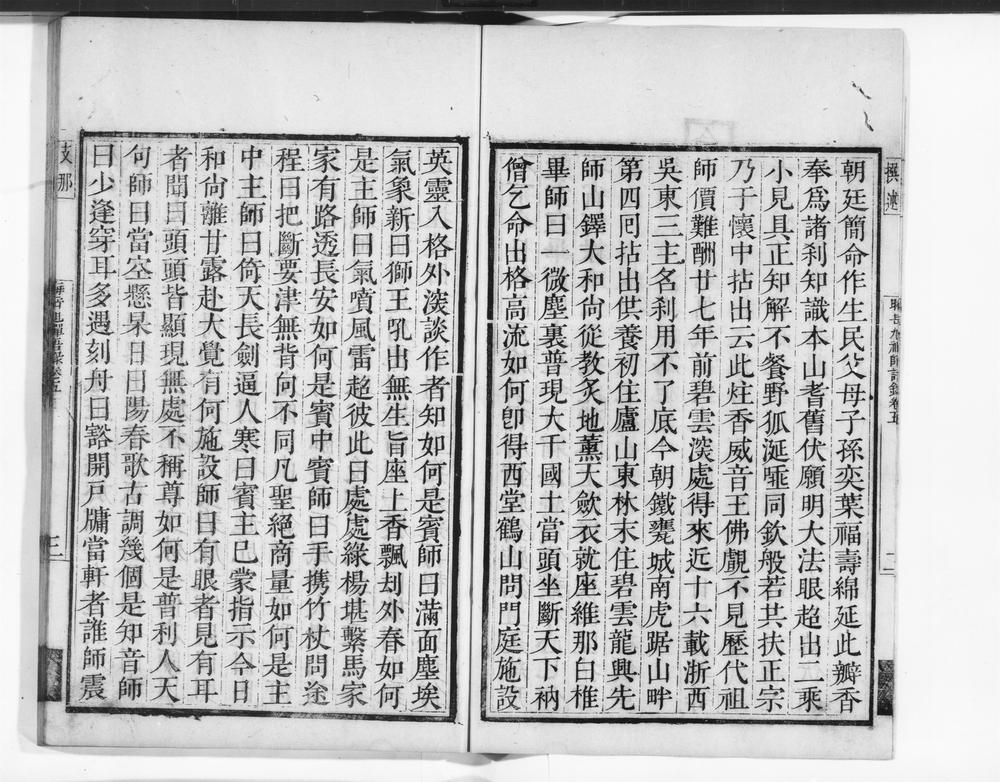 朝廷簡命作生民父母子孫奕葉福壽綿延此瓣香
奉爲諸刹知識本山耆舊伏願明大法眼超出二乘
小見具正知解不餐野狐涎唾同欽般若共扶正宗
乃于懷中拈出云此炷香威音王佛覰不見歷代祖
師價難酬廿七年前碧雲深處得來近十六載浙西
吳東三主名刹用不了底今朝鐵甕城南虎踞山畔
第四囘拈出供養初住廬山東林末住碧雲龍興先
師山鐸大和尚從教炙地薰天歛衣就座維那白椎
畢師曰一微塵裏普現大千國土當頭坐斷天下衲
僧乞命出格高流如何卽得西堂鶴山問門庭施設
英靈入格外淡談作者知如何是賓師曰滿面塵埃
氣象新曰獅王吼出無生旨座上香飄刧外春如何
是主師曰氣噴風雷超彼此曰處處綠楊堪繫馬家
家有路透長安如何是賓中賓師曰手携竹杖問途
程曰把斷要津無背向不同凡聖絕商量如何是主
中主師曰倚天長劍逼人寒曰賓主已蒙指示今日
和尚離甘露赴大覺有何施設師曰有眼者見有耳
者聞曰頭頭皆顯現無處不稱尊如何是普利人天
何師曰當空懸杲日曰陽春歌古調幾個是知音師
曰少逢穿耳多遇刻舟曰豁開戸牖當軒者誰師震
支那
三
二